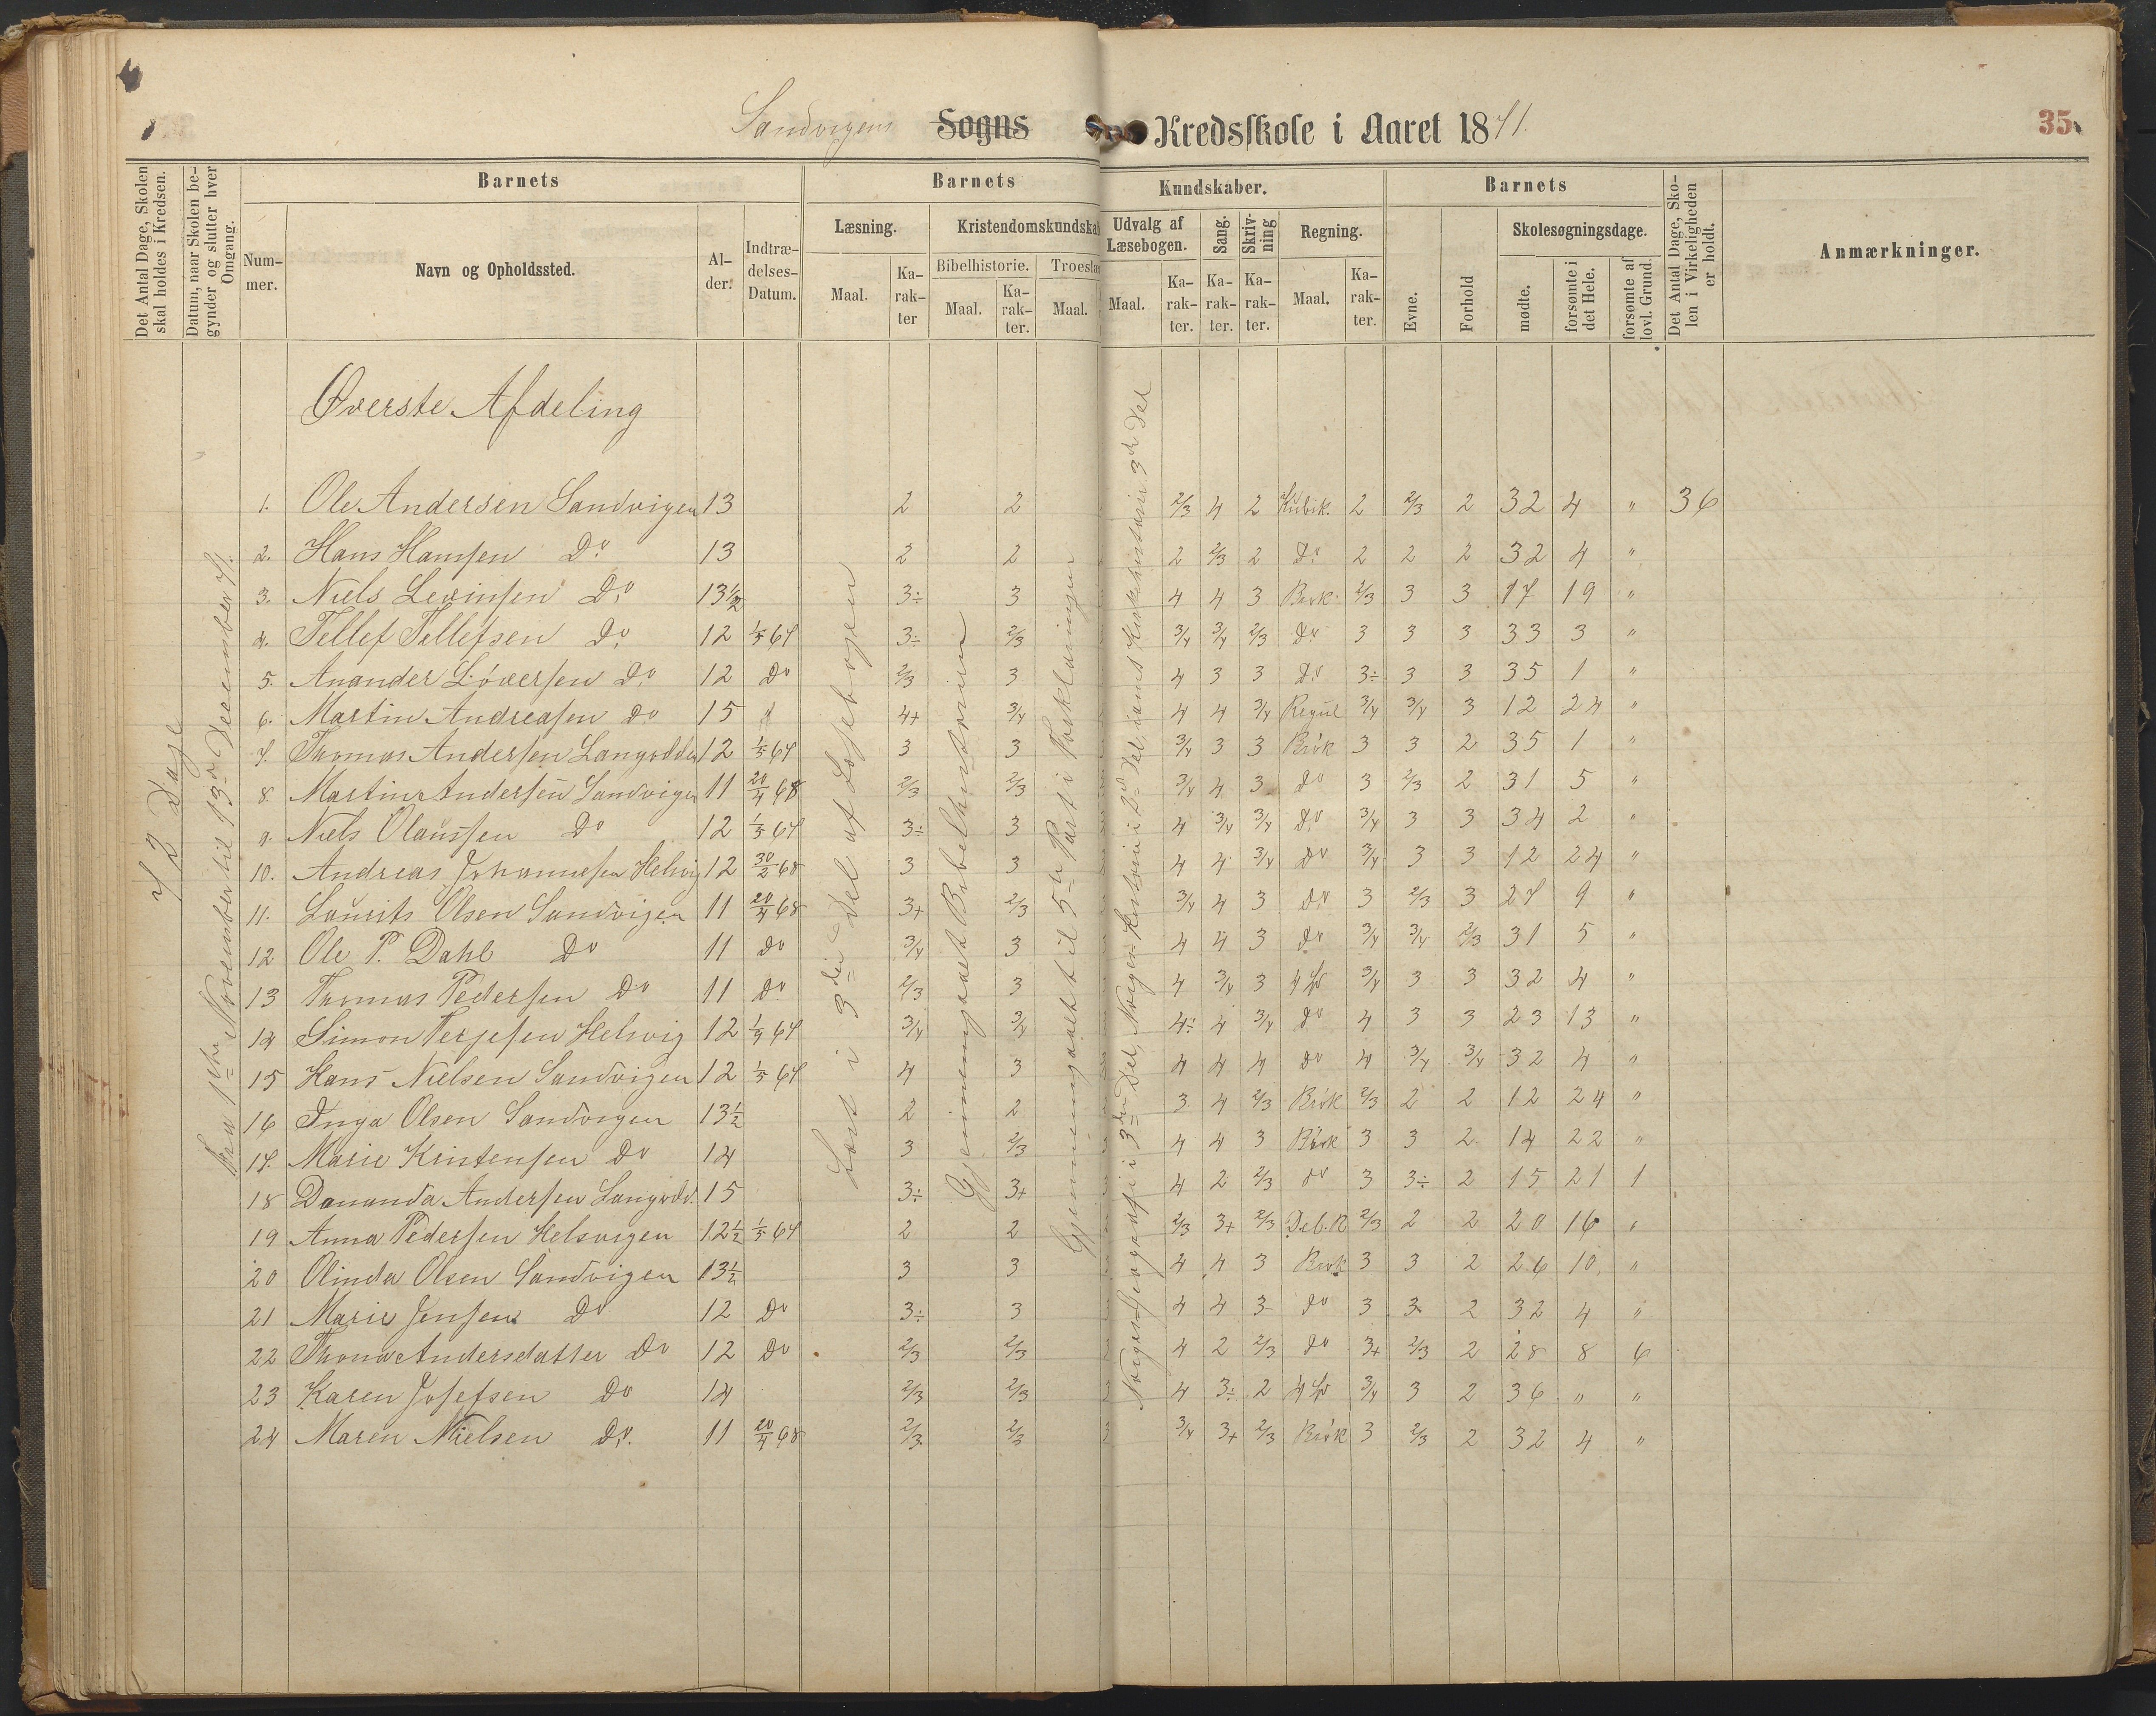 Sandvigens Sogns Kredsskole i Aaret 1871.
35
Det Antal Dage, Skolen skal holdes i Kredsen.
Datum, naar Skolen begynder og slutter hver Omgang.
Barnets
Barnets
Kundskaber.
Barnets
Det Antal Dage, Skolen i Virkeligheden er holdt.
Anmærkninger.
Nummer.
Navn og Opholdssted.
Alder.
Indtrædelses-Datum.
Læsning.
Kristendomskundskab
Udvalg af Læsebogen.
Sang.
Skrivning
Regning.
Evne.
Forhold
Skolesøgningsdage.
Bibelhistorie.
Troeslæ
Maal.
Karakter
Maal.
Karakter.
Maal.
Maal.
Karakter.
Karakter.
Karakter.
Maal.
Karakter.
mødte.
forsømte i det Hele.
forsømte af lovl. Grund.
Øverste Afdeling
72 Dage
Fra 1ste November til 13de December 71.
Læst i 3die Del af Læsebogen
Gjennemgaaet Bibelhistorien
Gjennemgaaet til 5te Part i Forklaringen
Norges Geografi i 3die Del, Norges Historie i 2den Del, samt Kirkehistorie i 3die Del
1. Ole Andersen Sandvigen 13 2 2 2/3 4 2 Kubik. 2 2/3 2 32 4 " 36
2. Hans Hansen Do 13 2 2 2 2/3 2 Do 2 2 2 32 4 "
3. Niels Levinsen Do 13½ 3÷ 3 4 4 3 Brøk 2/3 3 3 17 19 "
4. Tellef Tellefsen Do 12 1/5 67 3÷ 2/3 3/4 3/4 2/3 Do 3 3 3 33 3 "
5. Anander Løversen Do 12 Do 2/3 3 4 3 3 Do 3÷ 3 3 35 1 "
6. Martin Andreasen Do 15 " 4+ 3/4 4 4 3/4 Regul 3/4 3/4 3 12 24 "
7. Thomas Andersen Langodden 12 1/5 67 3 3 3/4 3 3 Brøk 3 3 2 35 1 "
8. Martin Andersen Sandvigen 11 20/4 68 2/3 2/3 3/4 4 3 Do 3 2/3 2 31 5 "
9. Niels Olaussen Do 12 1/5 67 3÷ 3 4 3/4 3/4 Do 3/4 3 3 34 2 "
10. Andreas Johannesen Helvig 12 30/2 68 3 3 4 4 3/4 Do 3/4 3 3 12 24 "
11. Laurits Olsen Sandvigen 11 20/4 68 3+ 2/3 3/4 4 3 Do 3 2/3 3 27 9 "
12 Ole P. Dahl Do 11 Do 3/4 3 4 4 3 Do 3/4 3/4 2/3 31 5 "
13 Thomas Pedersen Do 11 Do 2/3 3 4 3/4 3 4 Sp 3/4 3 3 32 4 "
14 Simon Terjesen Helvig 12 1/9 67 3/4 3/4 4÷ 4 3/4 Do 4 3 3 23 13 "
15 Hans Nielsen Sandvigen 12 1/5 67 4 3 4 4 4 Do 4 3/4 3/4 32 4 "
16 Inga Olsen Sandvigen 13½ 2 2 3 4 2/3 Brøk 2/3 2 2 12 24 "
17. Marie Kristensen Do 14 3 2/3 4 4 3 Brøk 3 3 2 14 22 "
18 Andersen Langodd. 15 3÷ 3+ 4 2 2/3 Do 3 3÷ 2 15 21 1
19 Anna Pedersen Helsvigen 12½ 1/5 67 2 2 2/3 3+ 2/3 Del. R 2/3 2 2 20 16 "
20 Olinda Olsen Sandvigen 13½ 3 3 4 4 3 Brøk 3 3 2 26 10 "
21 Marie Jensen Do 12 Do 3÷ 3 4 4 3 Do 3 3 2 32 4 "
22 Thona Andersdatter Do 12 Do 2/3 2/3 4 2 2/3 Do 3+ 2/3 2 28 8 6
23 Karen Josefsen Do 14 2/3 2/3 4 3÷ 2 4 Sp 3/4 3 2 36 " "
24 Maren Nielsen Do. 11 20/4 68 2/3 2/3 3/4 3+ 2/3 Brøk 3 2/3 2 32 4 "